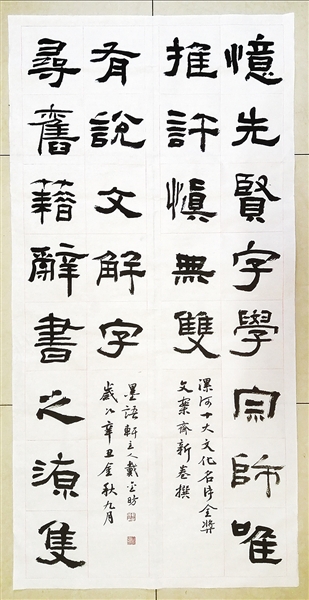 憶先賢字學宗師唯
推許愼無雙
漯河十大文化名片金獎
文案齋新卷撰
尋舊籍辭書之源隻
有說文解字
歲次辛丑金秋九月
墨語軒主人戴